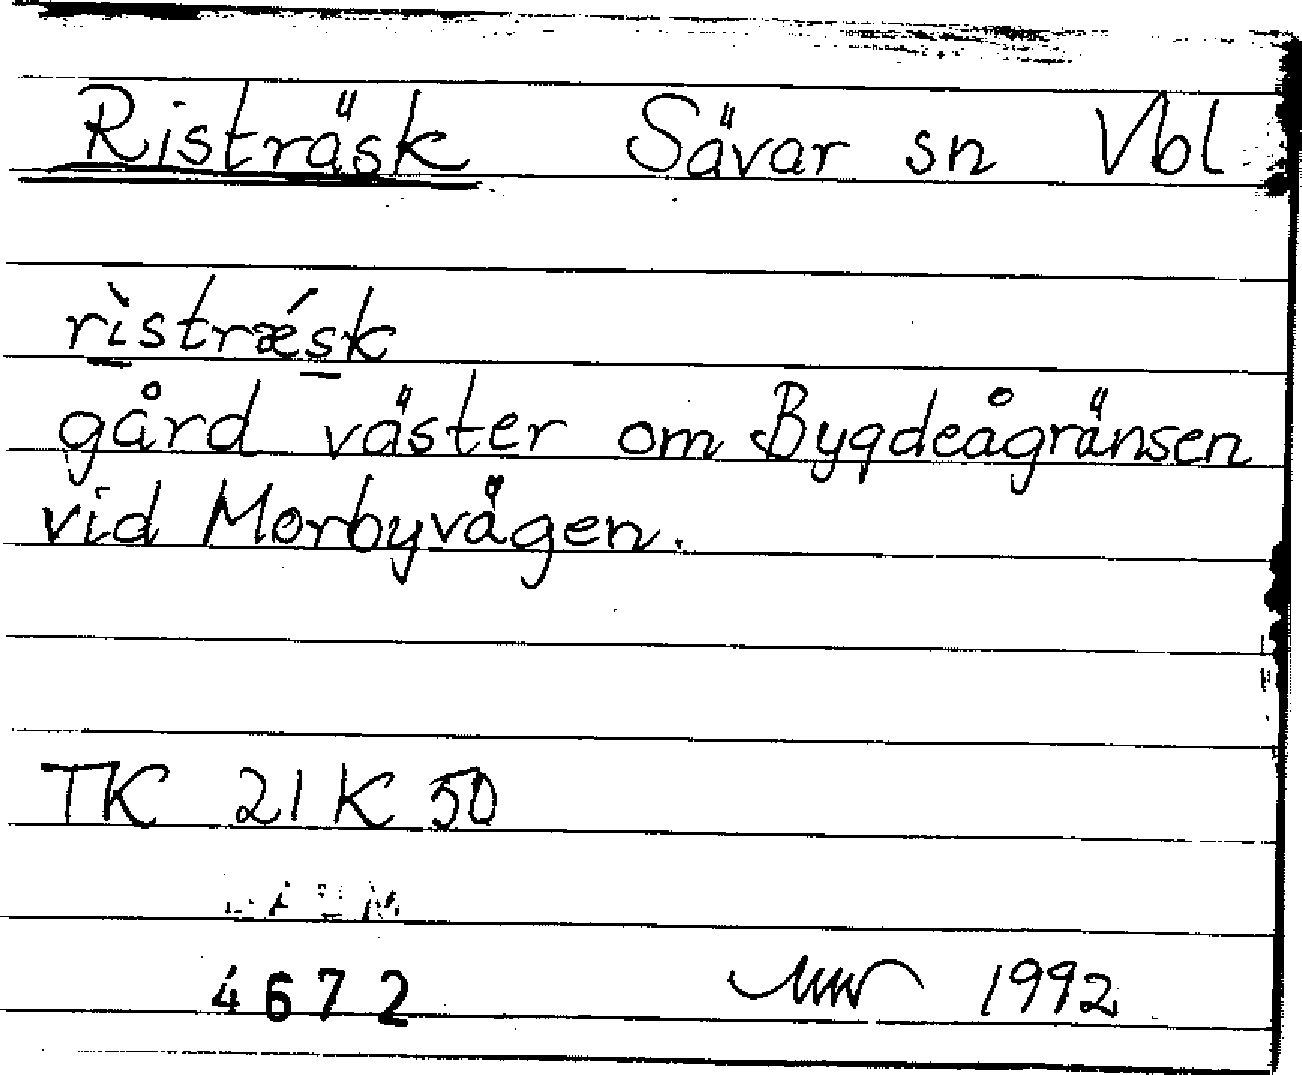 Risträsk Sävar sn Vbl
rìstrǽsk
gård väster om Bygdeågränsen
vid Morbyvägen.
TK 21 K 50
4672 1992